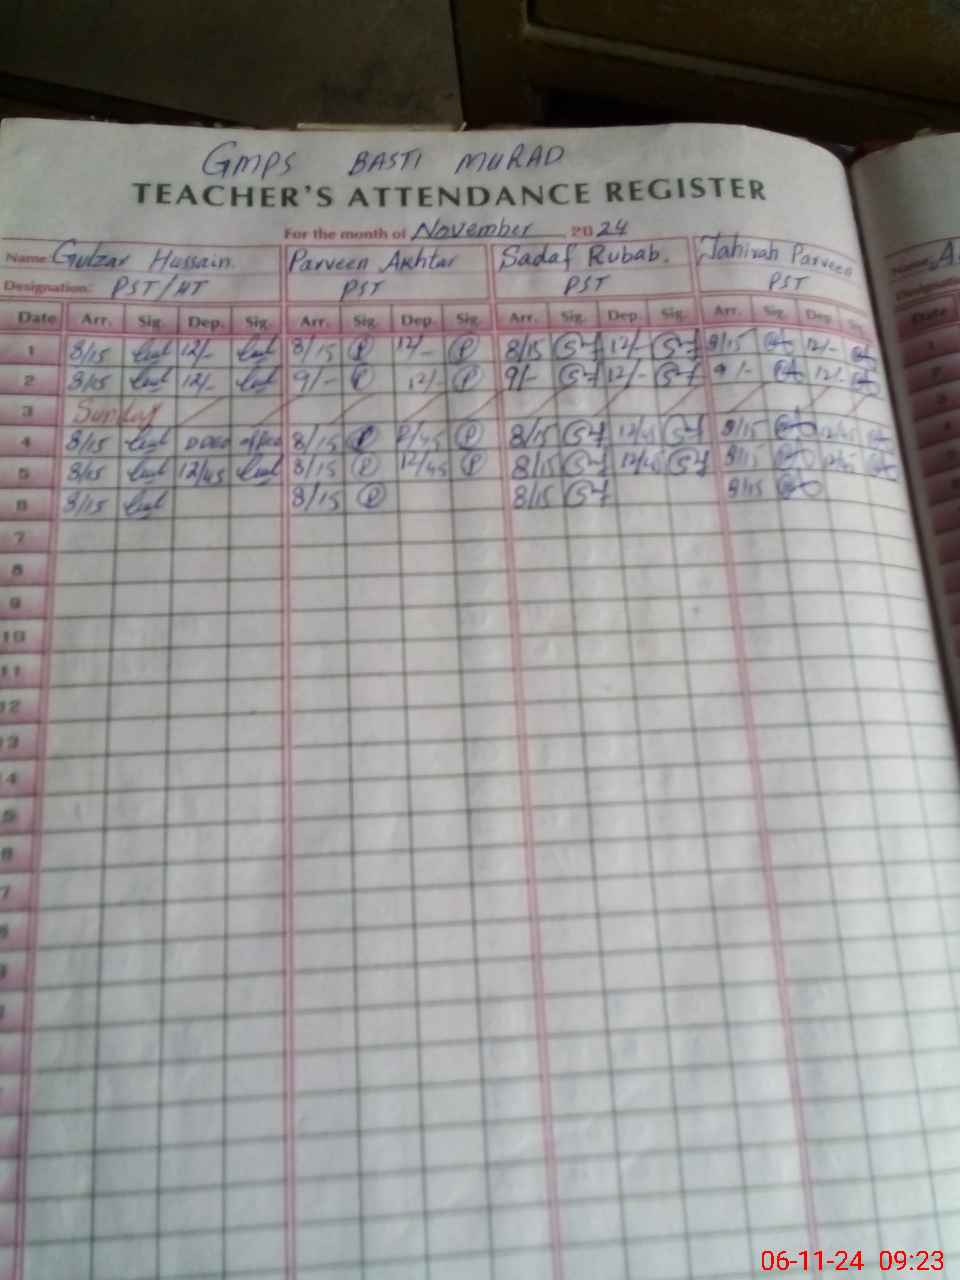 GMPS BASTI MURAD
TEACHER'S ATTENDANCE REGISTER
For the month of November 2024
Name: Gulzar Hussain. Parveen Akhtar Sadaf Rubab. Tahirah Parveen Name: A
Designation: PST/HT PST PST PST
Date Arr. Sig. Dep. Sig. Arr. Sig. Dep. Sig. Arr. Sig. Dep. Sig. Arr. Sig. Dep. Sig. Date
1 8/15 12/- 8/15 P 12/- P 8/15 12/- 8/15 12/-
2 8/15 12/- 9/- P 12/- P 9/- 12/- 9/- 12/-
3 Sunday
4 8/15 8/15 P 2/45 P 8/15 12/45 8/15 12/45
5 8/15 12/45 8/15 P 12/45 P 8/15 12/45 8/15 12/45
6 8/15 8/15 P 8/15 8/15
7
8
9
10
11
12
13
14
06-11-24 09:23